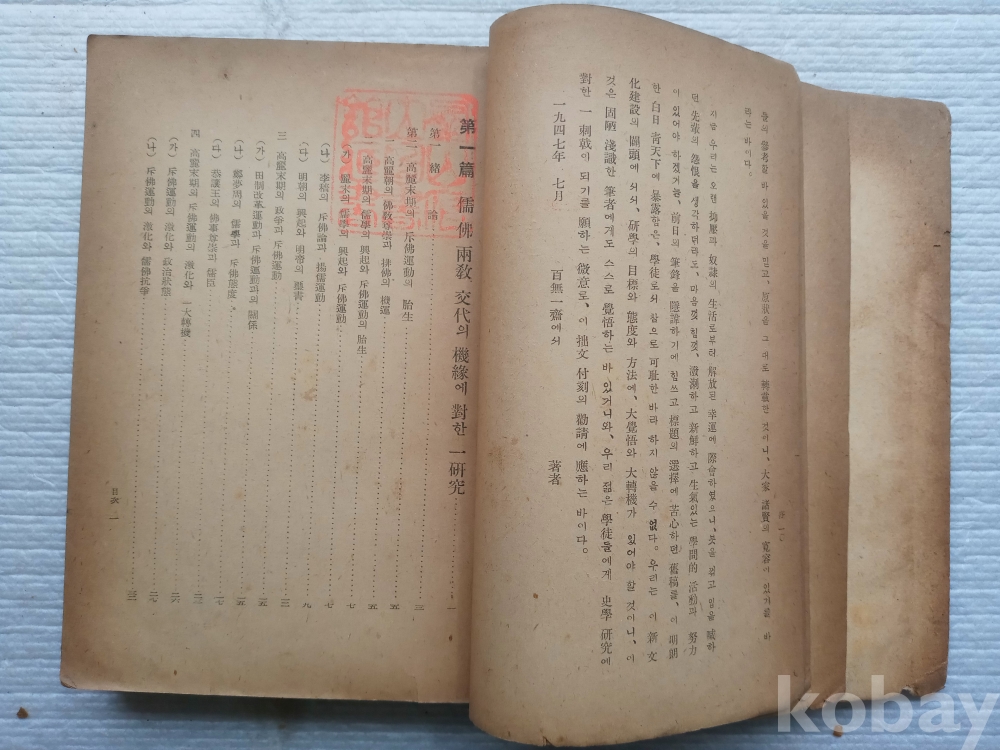 들의 參考할 바 있을 것을 믿고, 原狀을 그 대로 轉載한 것이니, 大家 諸賢의 寬容에 있기를 바
라는 바이다.
지금 우리는 오랜 搗壓과 奴隷의 生活로부터 解放된 幸運에 際會하였으니, 붓을 꺾고 입을 緘하
던 先輩의 怨恨을 생각하더라도, 마음껏 힘껏, 潑溂하고 新鮮하고 生氣있는 學問的 活動과 努力
이 있어야 하겠거늘, 前日의 筆鋒을 隱諱하기에 힘쓰고 標題의 選擇에 苦心하던 舊稿를, 이 明朗
한 白日 靑天下에 暴露함은, 學徒로서 참으로 可耻한 바라 하지 않을 수 없다. 우리는 이 新 文
化建設의 關頭에 서서, 硏學의 目標와 態度와 方法에, 大覺悟와 大轉機가 있어야 할 것이니, 이
것은 固陋 淺識한 筆者에게도 스스로 覺悟하는 바 있거니와, 우리 젊은 學徒들에게 史學 硏究에
對한 一刺戟이 되기를 願하는 微意로, 이 拙文 付刻의 勸請에 應하는 바이다.
一九四七年 七月 百無一齋에서 著者
第一篇 儒佛兩敎 交代의 機緣에 對한 一硏究 一
第一 緖論 一
第二 高麗末期의 斥佛運動의 胎生 三
一 高麗朝의 佛敎尊崇과 排佛의 機運 五
二 高麗末期의 儒學의 興起와 斥佛運動의 胎生 五
(가) 麗末의 儒學의 興起와 斥佛運動 七
(나) 李穡의 斥佛論과 揚儒運動 七
(다) 明朝의 興起와 明帝의 璽書 九
三 高麗末期의 政爭과 斥佛運動 三
(가) 田制改革運動과 斥佛運動과의 關係 五
(나) 鄭夢周의 儒學과 斥佛態度 五
(다) 恭讓王의 佛事尊崇과 儒臣
四 高麗末期의 斥佛運動의 激化와 一大轉機
(가) 斥佛運動의 激化와 政治狀態
(나) 斥佛運動의 激化와 儒佛抗爭
目次 一
kobay